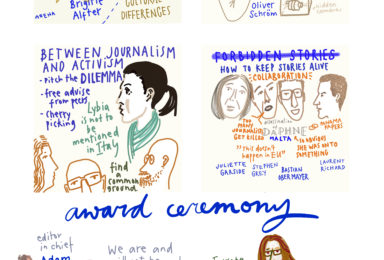 Brigitte
Alfter
CULTURAL
DIFFERENCES
ARENA
Oliver
Schröm
hidden
BETWEEN JOURNALISM
AND ACTIVISM
- Pitch the DILEMMA
- free advise
from peers
- Cherry
picking
Lybia
is not to
be
mentioned
in Italy
find a
common
ground
FORBIDDEN STORIES
HOW TO KEEP STORIES ALIVE
COLLABORATION
TOO
MANY
JOURNALISTS
GET KILLED
assassination
DAPHNE
MALTA
PANAMA
PAPERS
"This doesn't
happen in EU"
SO OBVIOUS
SHE WAS ONTO
SOMETHING
JULIETTE
GARSIDE
STEPHEN
GREY
BASTIAN
OBERMAYER
LAURENT
RICHARD
award ceremony
editor
in chief
Adam
We are and